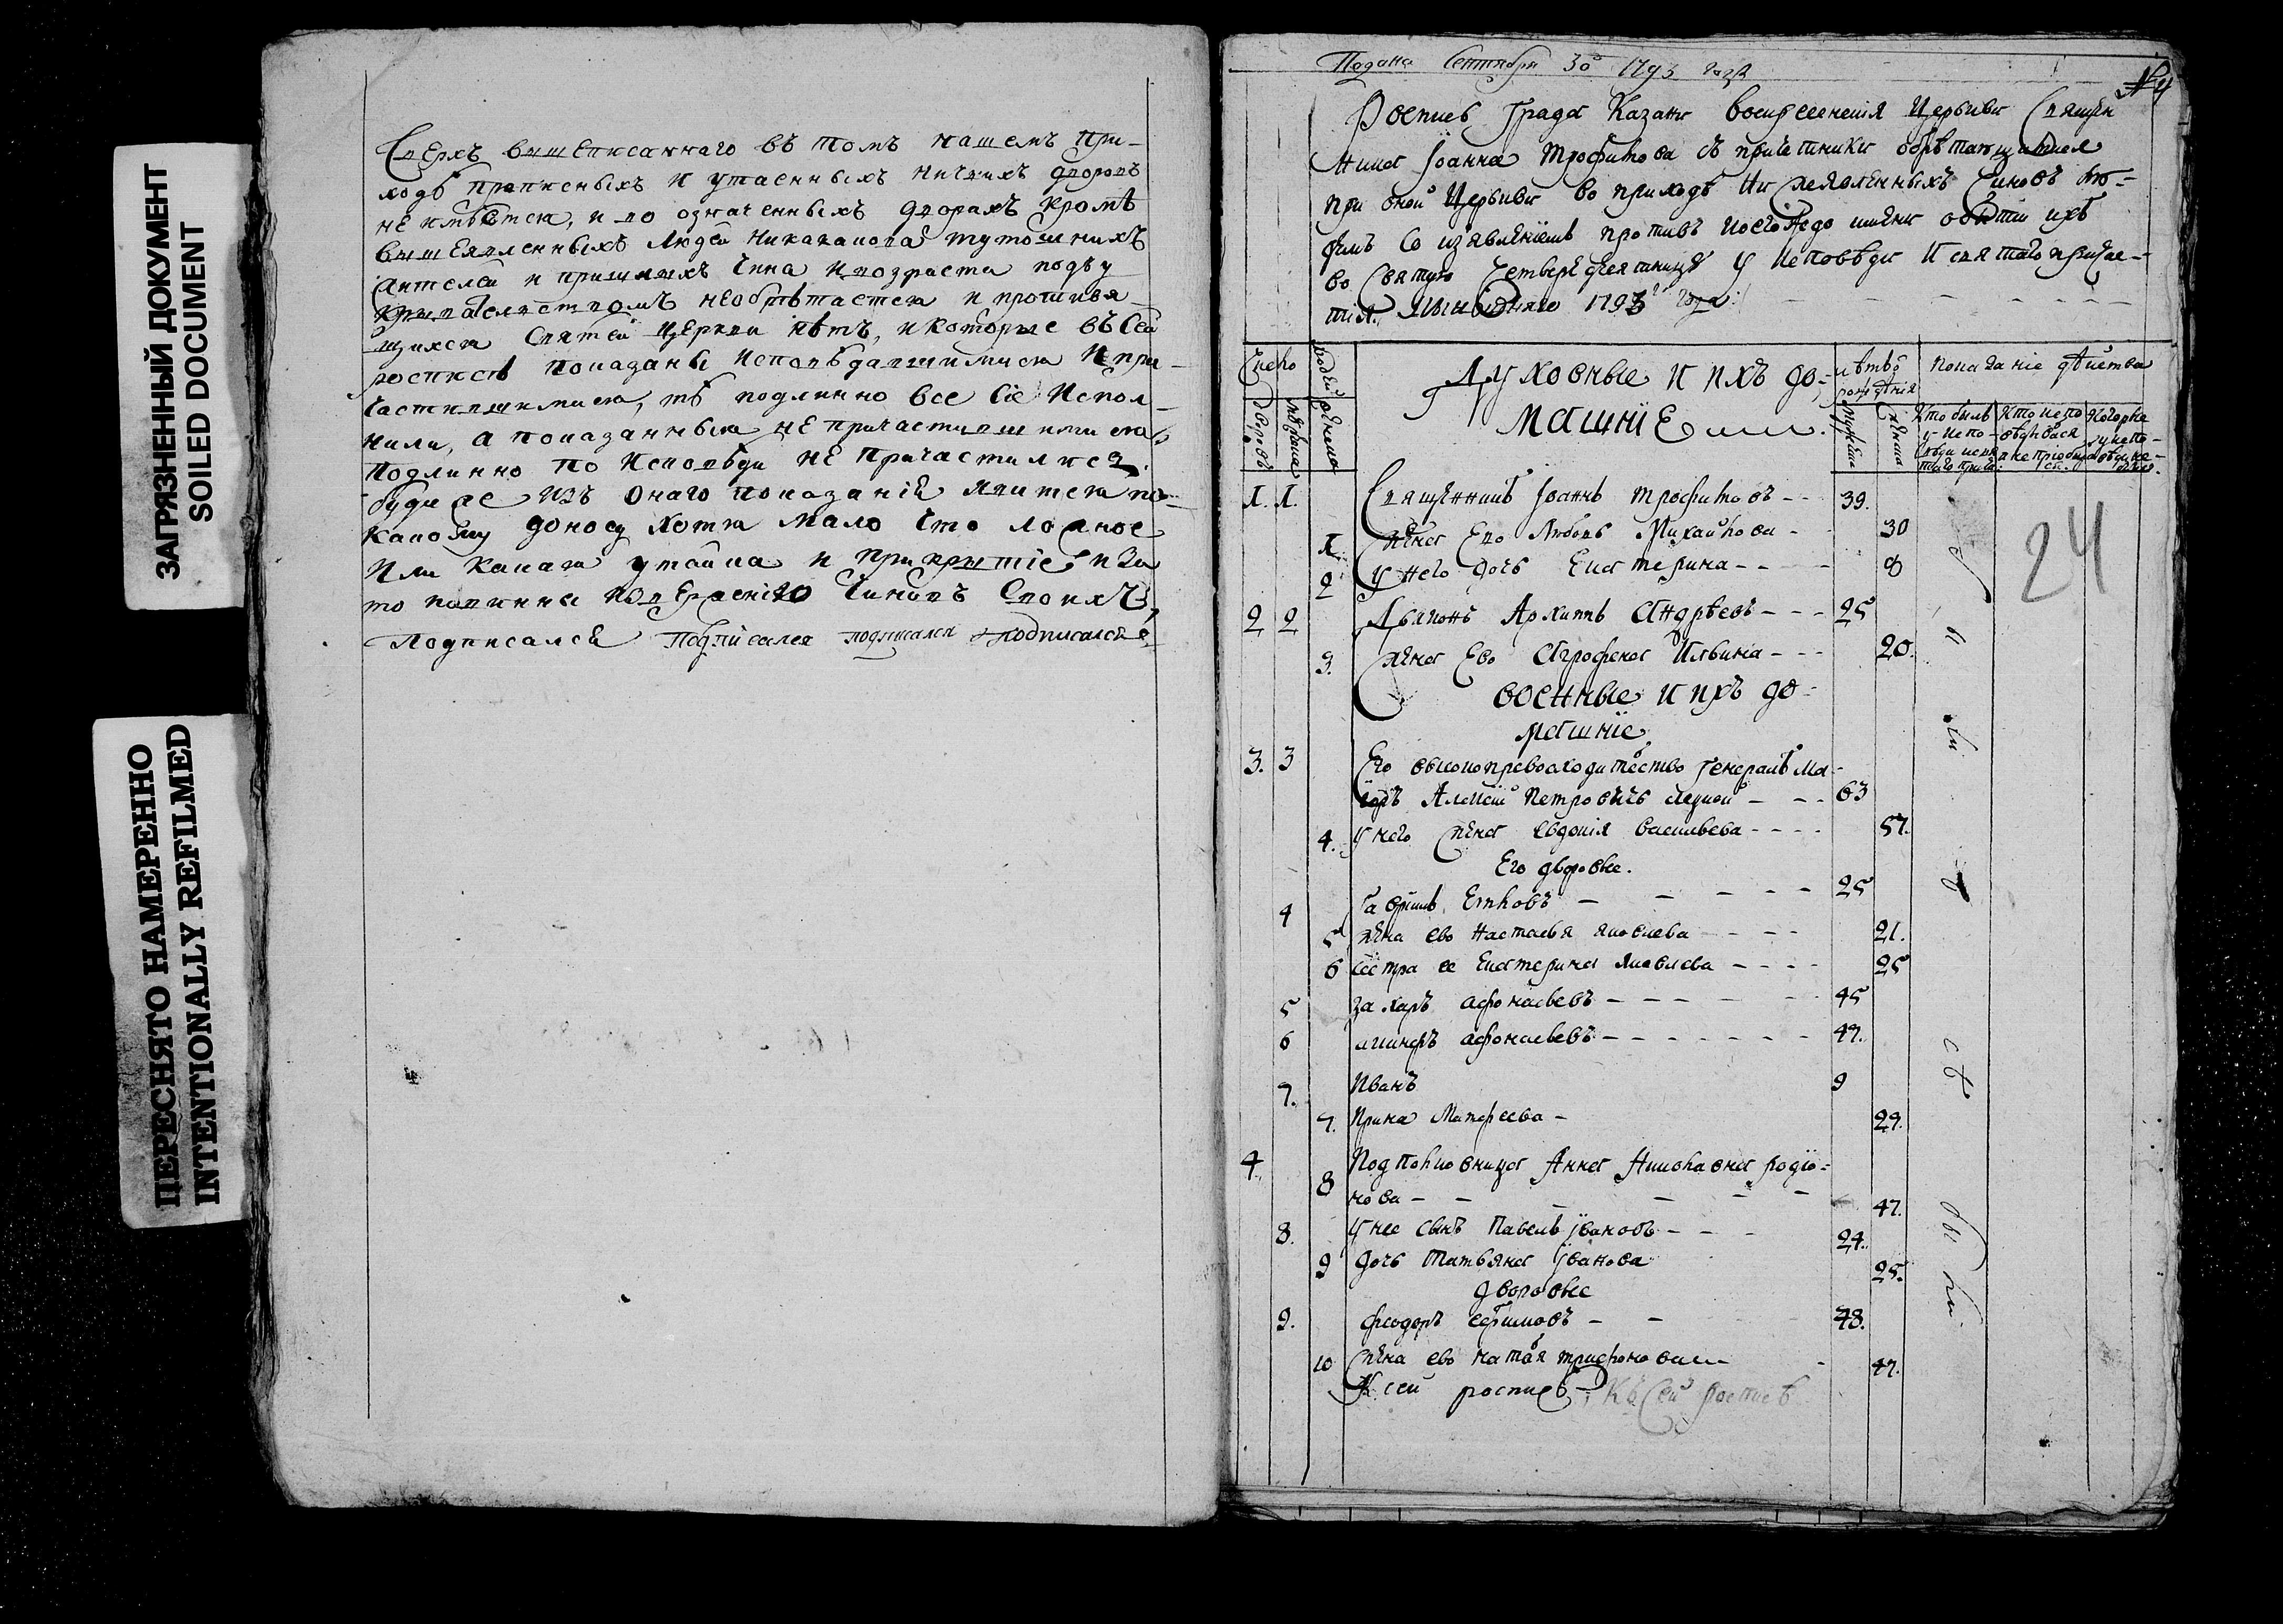 ЗАГРЯЗНЕННЫЙ ДОКУМЕНТ
SOILED DOCUMENT
ПЕРЕСНЯТО НАМЕРЕННО
INTENTIONALLY REFILMED
Сверхъ вышеписаннаго въ томъ нашемъ при-
ходѣ прописныхъ и утаенныхъ ничьихъ дворовъ
не имѣется, и во означенныхъ дворахъ кромѣ
вышеявленныхъ людей никакакова тутошнихъ
жителей и пришлыхъ чина и возраста подъ у
крывателствомъ необрѣтается и противя
щихся святей церкви нѣтъ, и которые въ сей
росписѣ показаны исповѣдавшимися и при-
частившимися, тѣ подлинно все сіе испол-
нили, а показанныя не причастившимися
подлинно по исповѣди не причастилися
буде же изъ онаго показаній явится по
какому доносу хотя мало что ложное
или какая утайка и прикрытіе, и за
то повинны изверженію чиновъ своихъ,
подписался подписался подписался подписался
Подана Сентября 30 1793 года
Роспись града Казани воскресенския церькви священ
ника Іоанна Трофимова съ причетники обрѣтающимися
при оной церькви во приходѣ нижеявленныхъ чиновъ лю-
демъ со изъявлениемъ противъ коегождо имяни о бытіи ихъ
во святую четыредесятницу у исповѣди и святаго причас-
тія. 1793 года
Число
дворовъ
людей
мужеска
женска
Духовные и ихъ до-
машніе
лѣтъ о рожденія
мужеска
женска
показаніе дѣйства
Кто былъ у исповѣди и святаго прича:
Кто исповѣдывался а не приобща ся.
Которые у исповѣди не были.
1. 1. Священникъ Іоаннъ Трофимовъ - - 39.
1. жена его Любовь Михайлова - 30
2 у него дочь Екатерина - - - 8
2 2 Дьяконъ Архипъ Андрѣевъ - - - 25
3. жена ево Аграфена Ильина - - - 20.
военные и ихъ до-
машніе
3. 3 Его высокопревосходителство генералъ Ма-
іоръ Алексѣй Петровичъ - - - 63
4. у него жена Евдокія Васильева - - - - 57.
Его дворовые.
4 Гавриилъ - - - - 25
5 жена ево Настасья Яковлева - - - - 21.
6 сестра ее Екатерина Яковлева - - - - 25
5 Захаръ Афонасьевъ - - - - - 45
6 Афонасьевъ - - - - - - - 47.
7. Иванъ 9
7. Ирина Матфеева - 29.
4. 8 Подполковница Анна Николаевна Родіо-
нова - - - - - - 47.
8. у нее сынъ Павелъ Івановъ - - - 24.
9 дочь Татьяна Іванова 25.
дворовые
9. Феодоръ Ефимовъ - - 48.
10 жена ево Наталья Трифонова 47.
К сей росписѣ Къ сей росписѣ
24